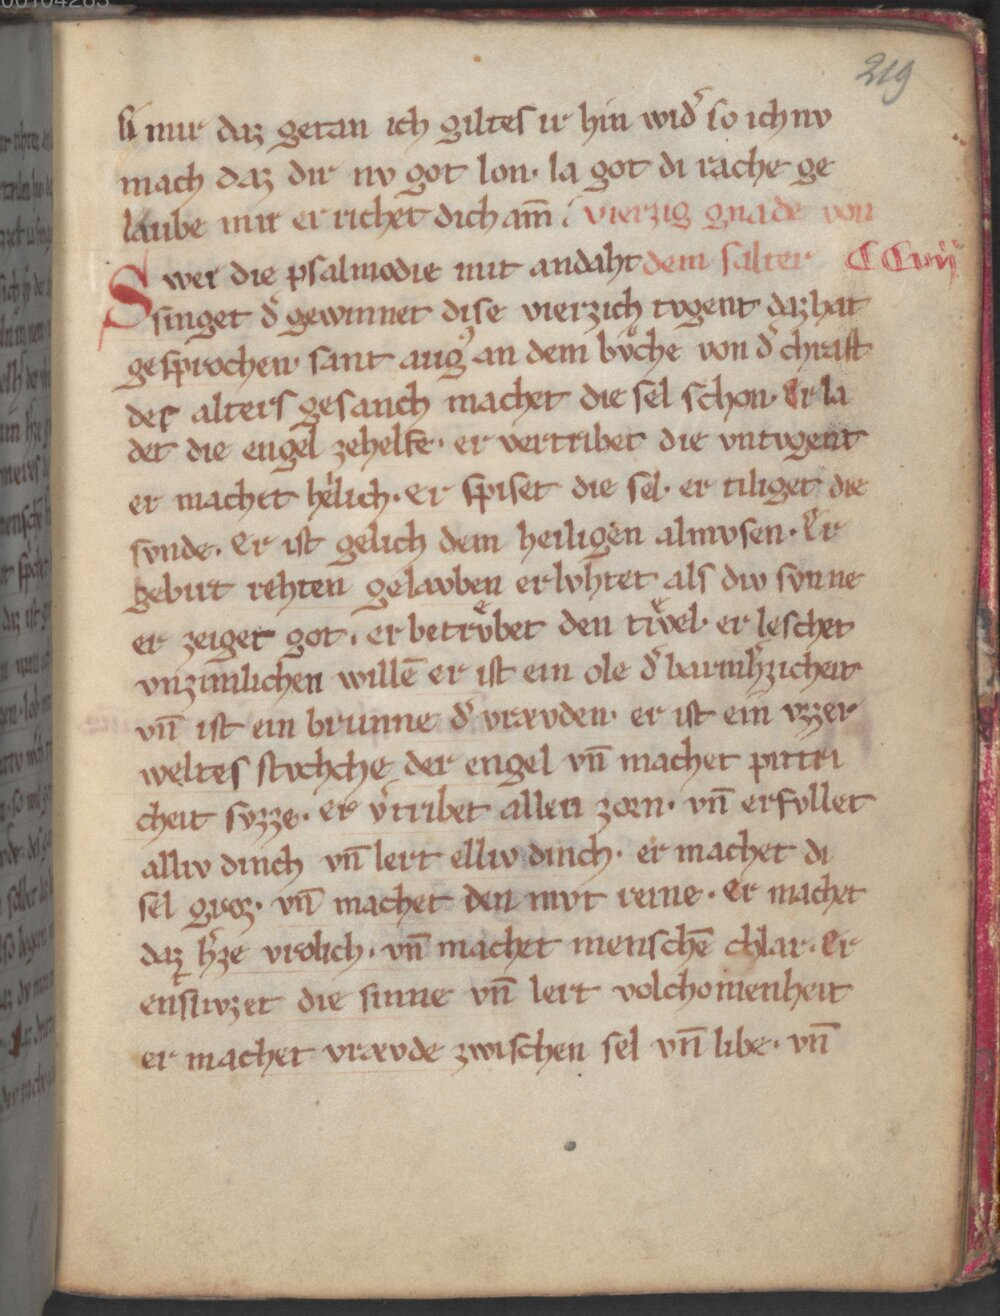 219
si mir daz getan ich giltes ir hin wid̉ so ich nv
mach daz dir nv got lon · la got di rache ge
laube mir er richet dich am̄ vierzig gnade von
Swer die psalmodie mit andaht dem salter CCxvij
singet d̉ gewinnet dise vierzich tvgent daz hat
gesprochen · sant aug̉ an dem bv̊che von d̉ chraft
des alters gesanch machet die sel schon · Er la
det die engel zehelfe · er vertribet die vntvgent
er machet helich · er spiset die sel · er tiliget die
svnde · Er ist gelich dem heiligen almvsen · Er
gebirt rehten gelavben er lvhtet als div svnne
er zeiget got · er betrv̊bet den tivel · er leschet
vnzimlichen willē er ist ein ole d̉ barmh̉zicheit
vn̄ ist ein brunne d̉ vrævden · er ist ein vzzer
weltes stvchche der engel vn̄ machet pittri
cheit svzze · er v̉tribet allen zorn · vn̄ erfvllet
alliv dinch vn̄ lert elliv dinch · er machet di
sel groz · vn̄ machet den mvt reine · Er machet
daz h̉ze vrolich · vn̄ machet menschē chlar · Er
enslivzet die sinne vn̄ lert volchomenheit
er machet vrævde zwischen sel vn̄ libe · vn̄